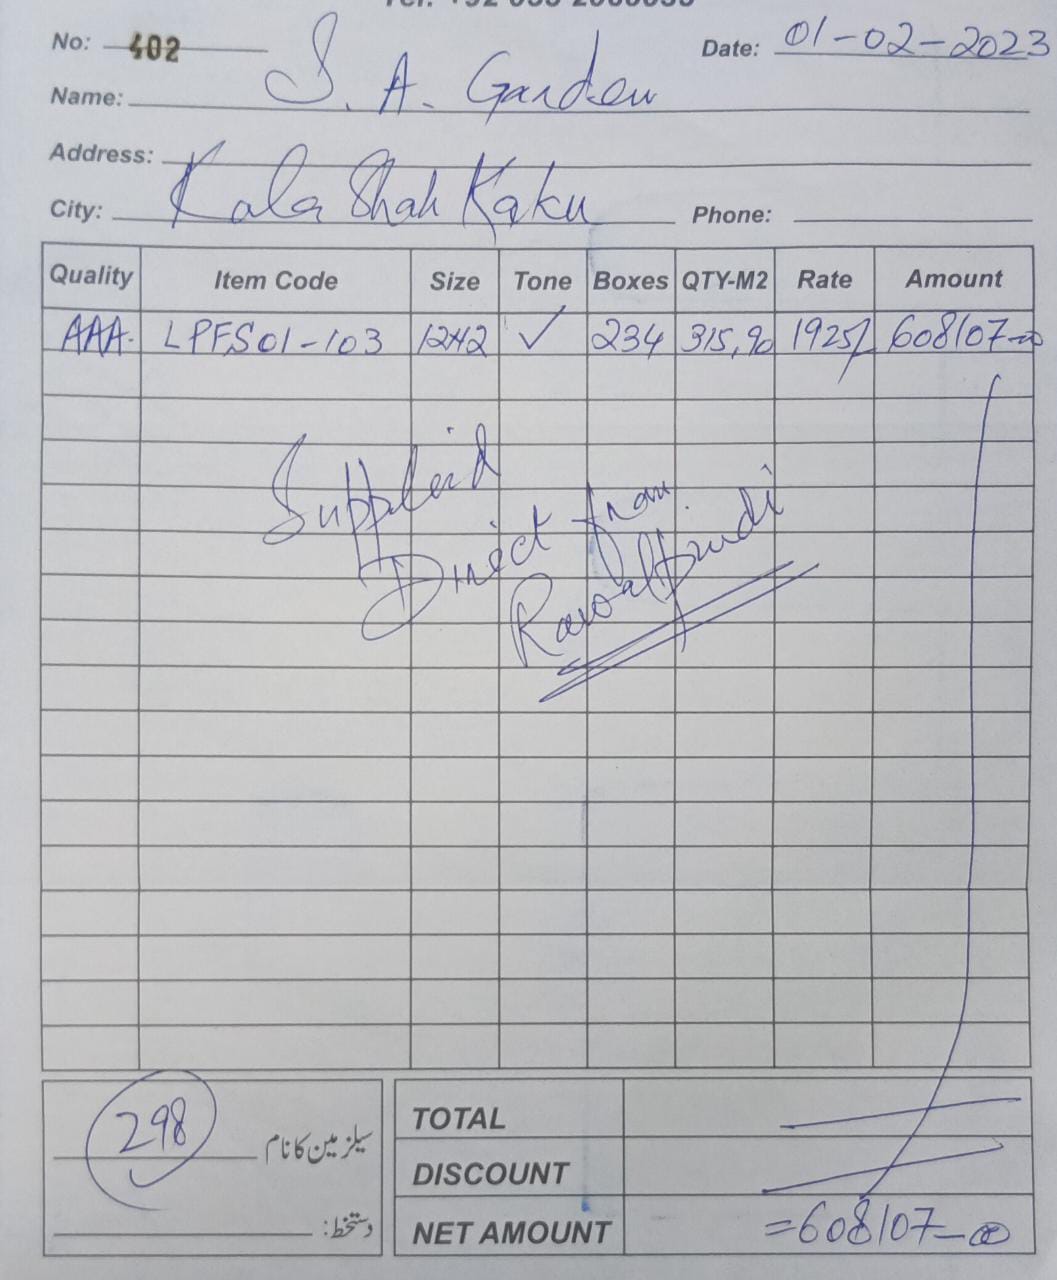 No: 402
Date: 01-02-2023
Name: S. A. Garden
Address:
City: Kala Shah Kaku Phone:
Quality Item Code Size Tone Boxes QTY-M2 Rate Amount
AAA. LPFS01-103 12x12 ✓ 234 315,90 1925/ 608107-00
Supplied
Direct from
Rawalpindi
298
سیلز مین کا نام
دستخط:
TOTAL
DISCOUNT
NET AMOUNT =608107-00